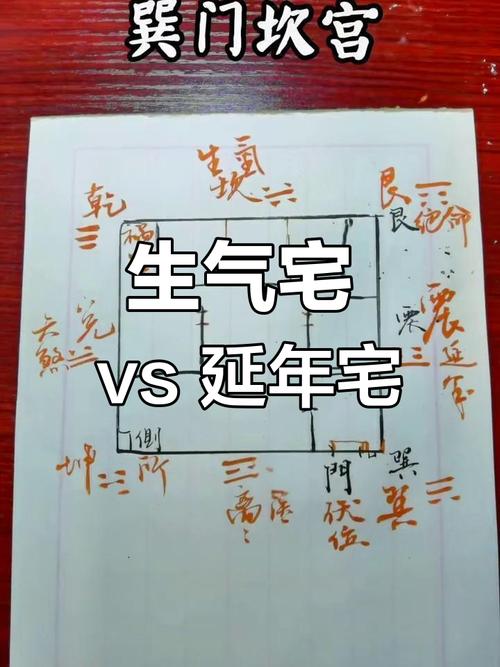 巽门坎宫
生氣
坎
乾
艮
艮
绝命
禍
生气宅
兑
震
震
延年
vs 延年宅
側
坤
所
離
門
伏位
巽
巽